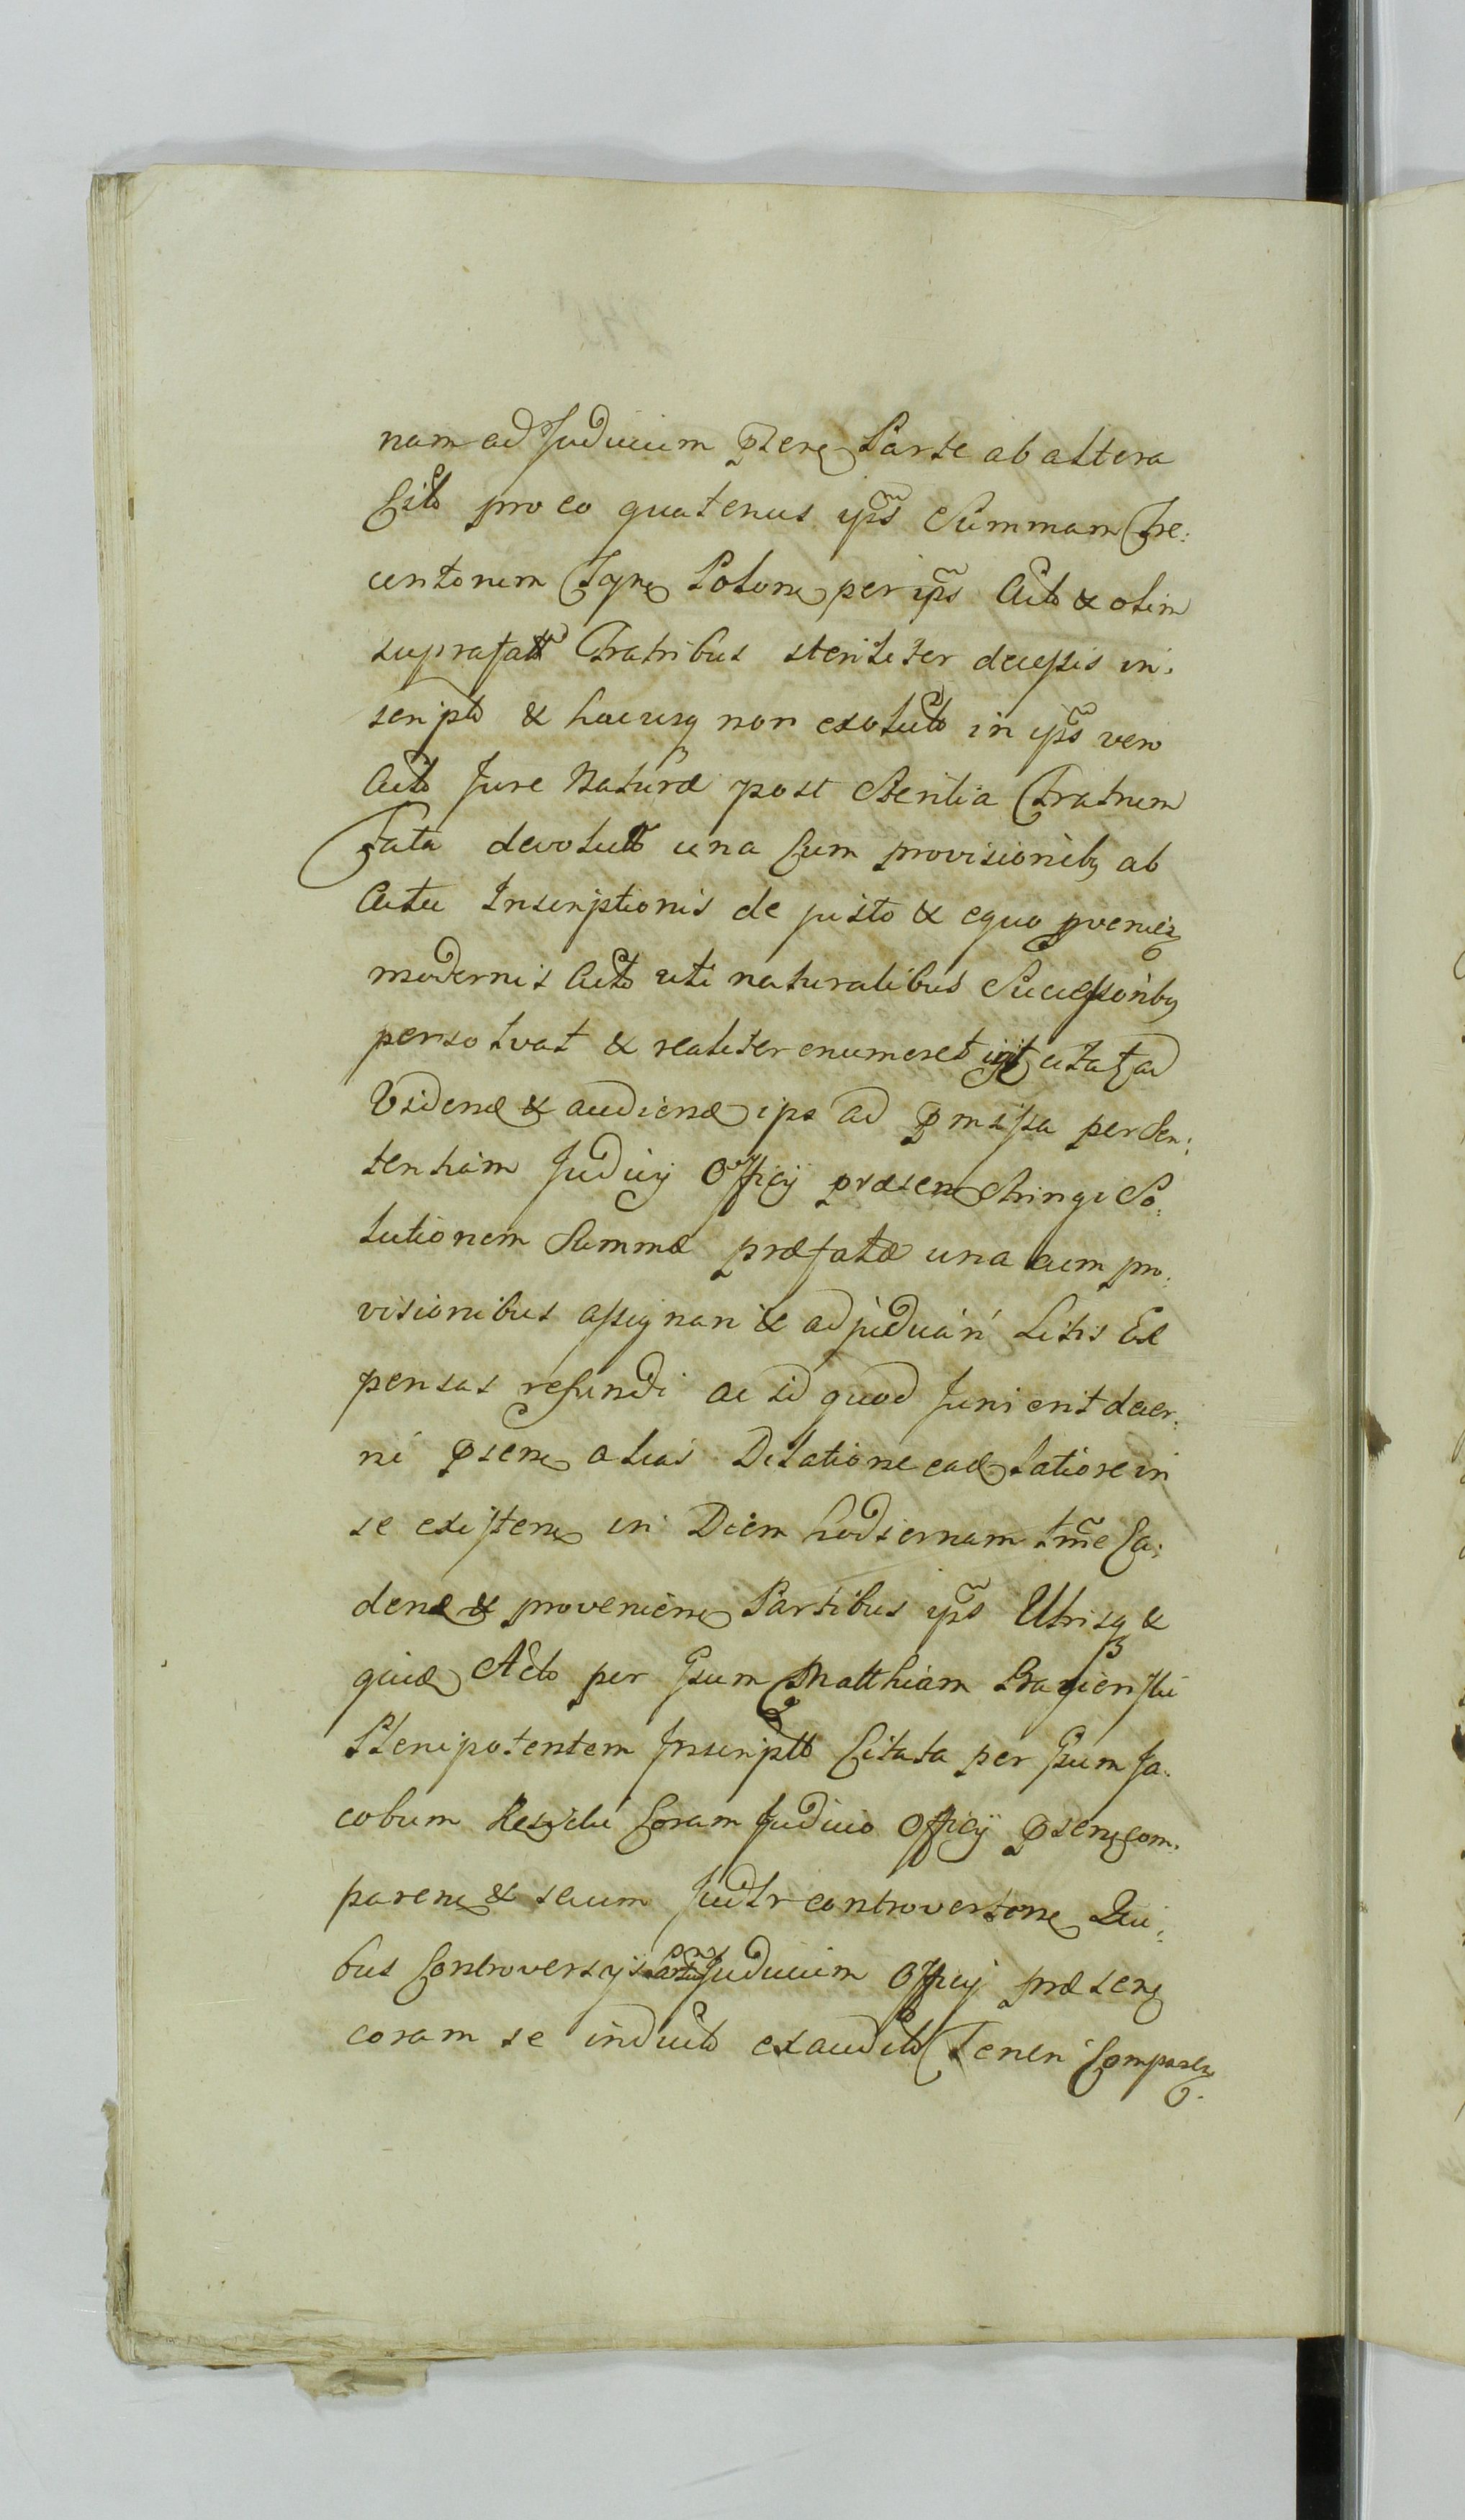 nam ad Judicium psene Parte ab altera
Cito pro eo quatenus ips Summam Tre:
centorum Tyne Polone per ips Acto & olim
suprafatt Fratribus steriliter decessis in:
script & hucusq non exolut in ips vero
Acto Jure Naturæ post Sterilia Fratrum
Fata devolut una Cum provisionibq ab
Actu Inscriptionis de justo & equo
modernis Acto uti naturalibus Successoribq
persolvat & realiter enumeret citat ad
Videnđ & audienđ ips ad pmissa per Sen:
tentiam Judicij Officij præsen stringi So:
lutionem Summæ præfatæ una cum pro:
visionibus assignari & adjudicari Litis Ex
pensas refundi ac id quod Juri erit decer:
ni psene alias Dilatione eađ latiore in
se existene in Diem hodiernam tme Ca:
denđ & proveniene Partibus ips Utrisq &
quiđ Acto per Gsum Matthiam
Plenipotentem Inscript Citata per Gsum Ja:
cobum Coram Judicio Officij psene com:
parene & secum Judlr controvertene Qui:
bus Controversijs Partiu Judicium Officij præsene
coram se induct exaudito Teneri